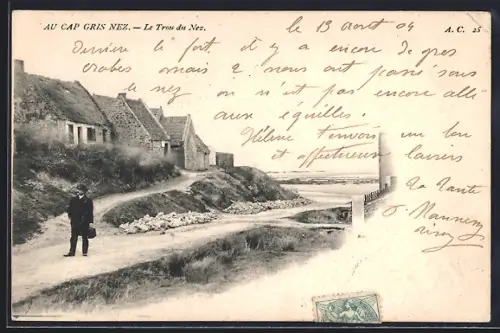 AU CAP GRIS NEZ. — Le Trou du Nez.
A. C. 25
le 13 août 04
Derrière le fort il y a encore de gros
crabes mais 2 nous ont passé sous
le nez on n'est pas encore allé
aux équilles.
Hélène t'envoie un bon
et affectueux baisers
Ta Tante